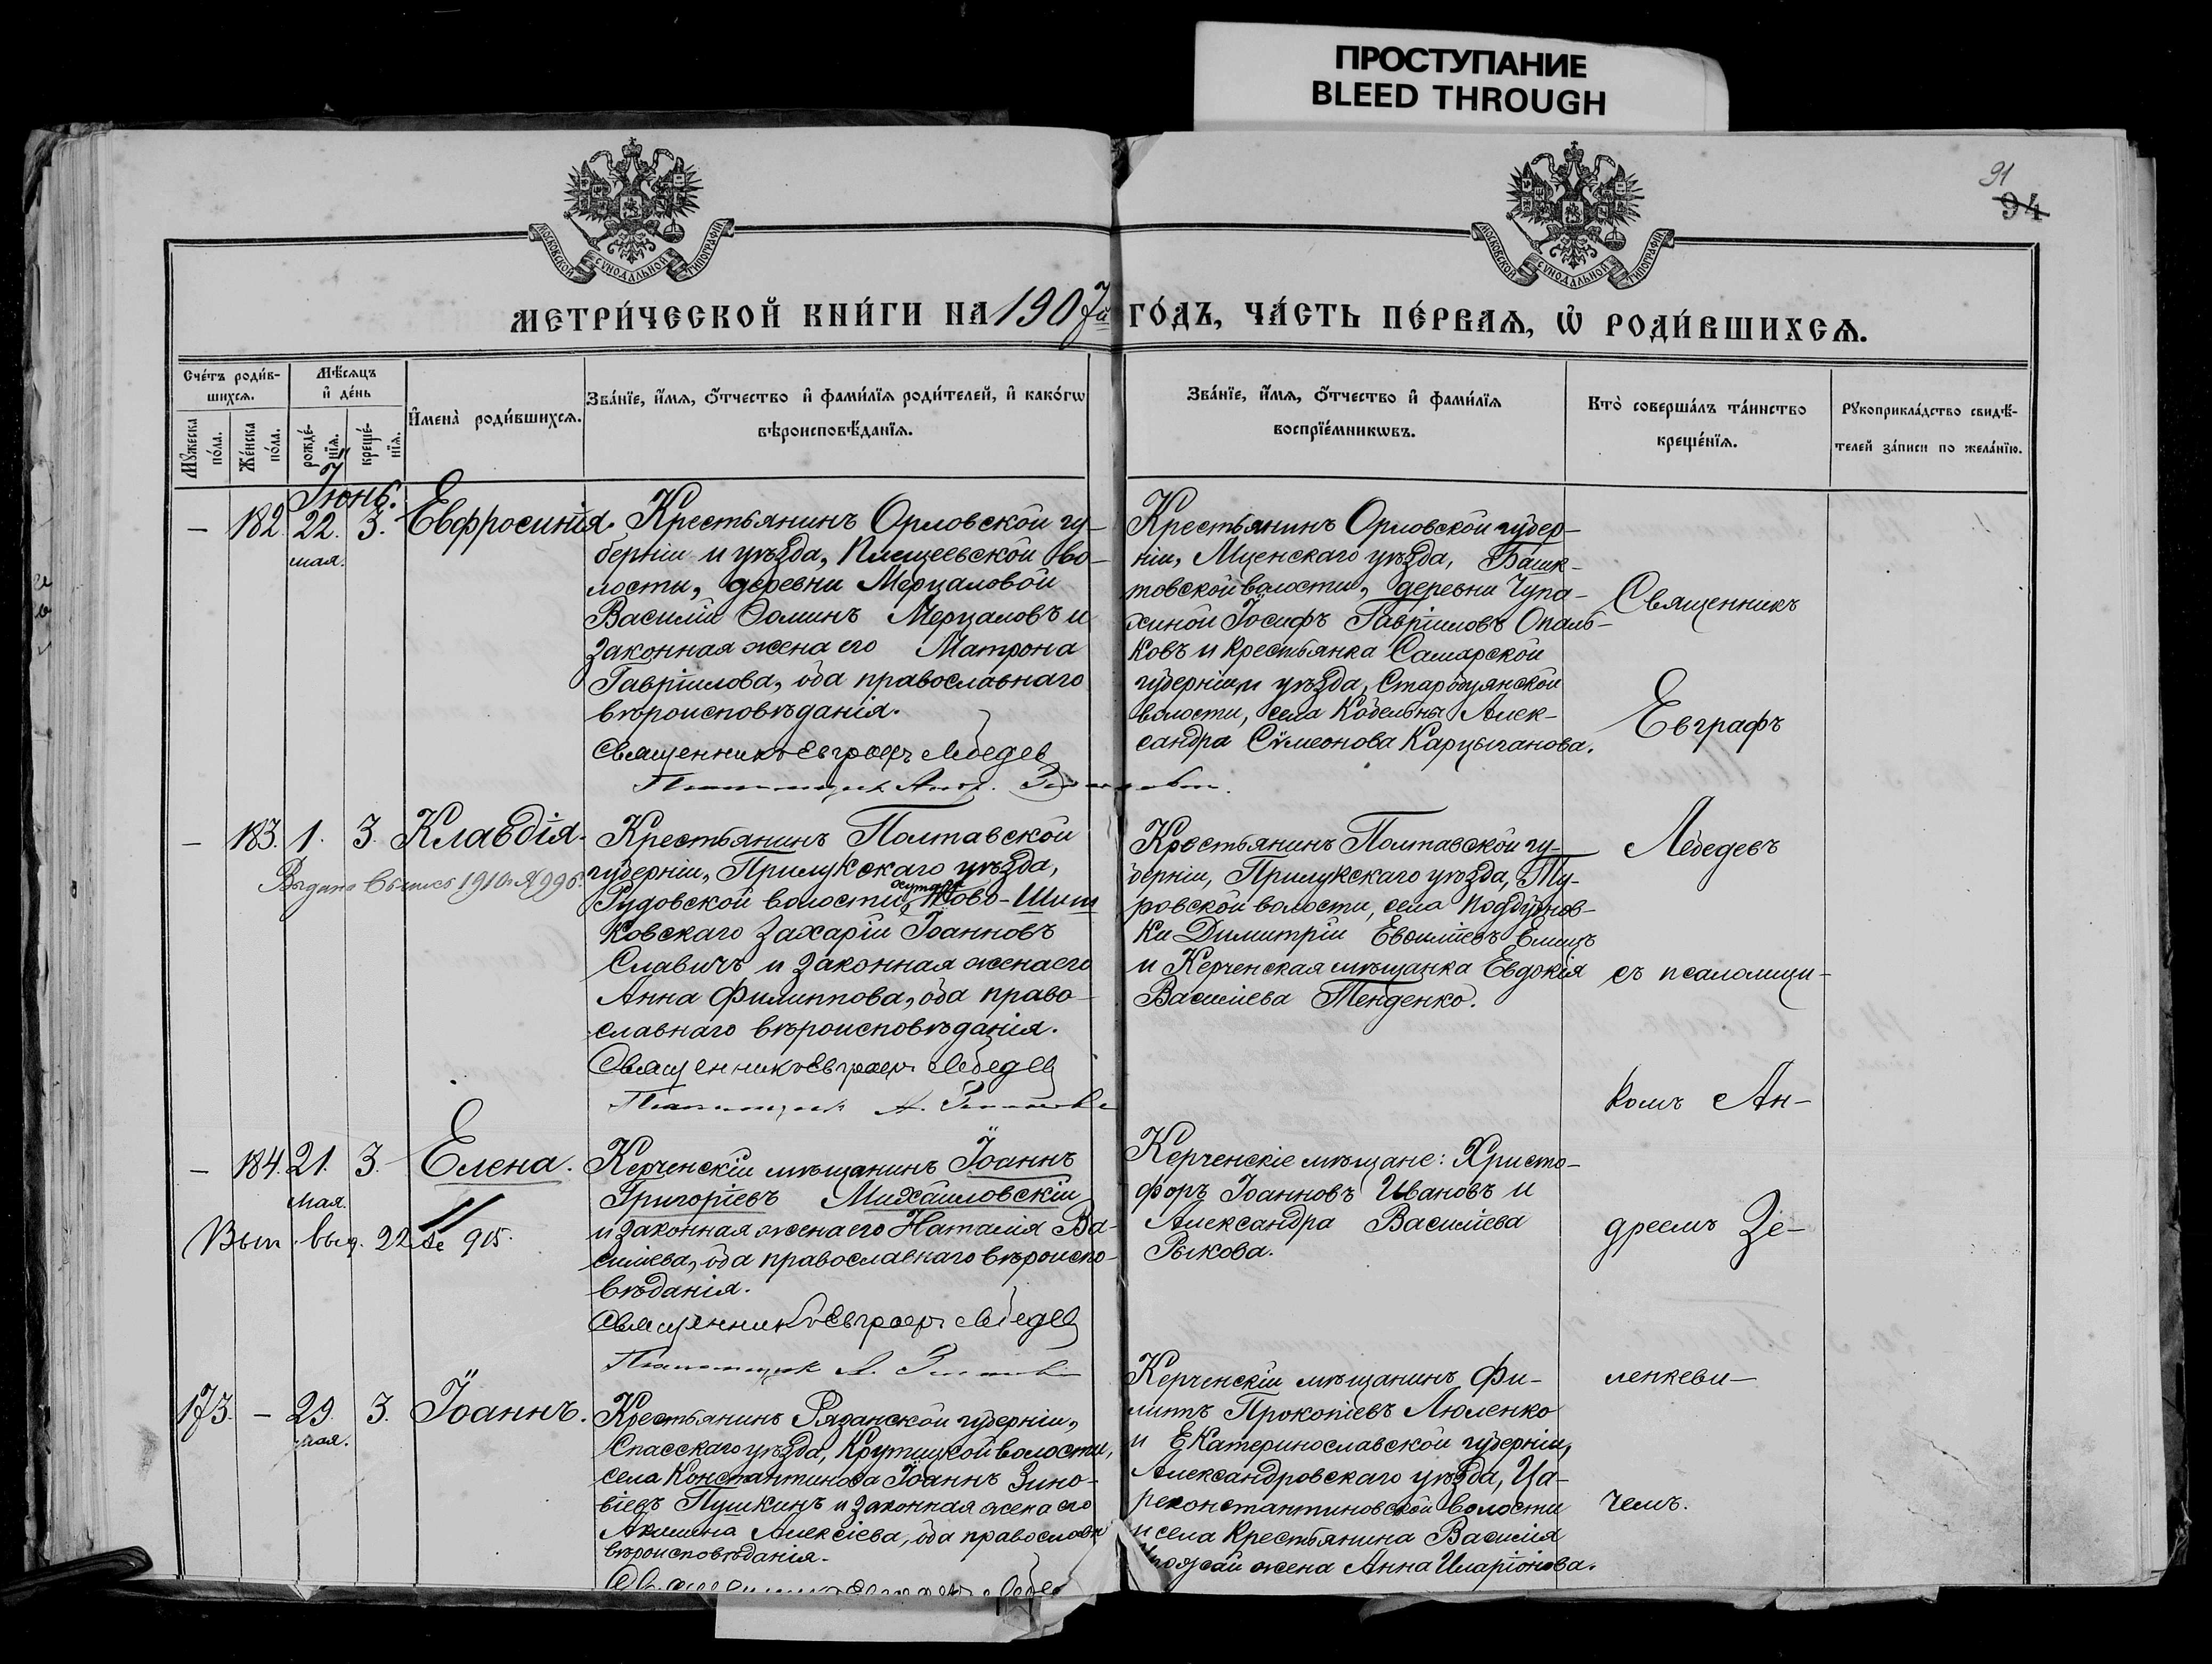 ПРОСТУПАНИЕ
BLEED THROUGH
91
94
МОСКОВСКОЙ СѴНОДАЛЬНОЙ ТИПОГРАФІИ
МОСКОВСКОЙ СѴНОДАЛЬНОЙ ТИПОГРАФІИ
МЕТРИ́ЧЕСКОЙ КНИ́ГИ НА 1907й ГО́ДЪ, ЧА́СТЬ ПЕ́РВАѦ, Ѡ҆ РОДИ́ВШИХСѦ.
Сче́тъ роди́в-
шихсѧ.
Мѣ́сѧцъ
и҆ де́нь
Мꙋ́жеска
по́ла.
Же́нска
по́ла.
рожде́-
нїѧ.
креще́-
нїѧ.
И҆мена̀ роди́вшихсѧ.
Зва́нїе, и҆́мѧ, ѻ҆́тчество и҆ фами́лїѧ роди́телей, и҆ како́гѡ
вѣроисповѣ́данїѧ.
Зва́нїе, и҆́мѧ, ѻ҆́тчество и҆ фами́лїѧ
воспрїе́мникѡвъ.
Кто̀ соверша́лъ та́инство
креще́нїѧ.
Рꙋкоприкла́дство свидѣ́-
телей за́писи по жела́нїю.
Іюнь.
— 182. 22. 3. Евфросинія.
мая.
Крестьянинъ Орловской гу-
берніи и уѣзда, Плещеевской во-
лости, деревни Мерцаловой
Василій Ѳоминъ Мерцаловъ и
законная жена его Матрона
Гавріилова, оба православнаго
вѣроисповѣданія.
Священникъ Евграфъ Лебедев
Псаломщик
Крестьянинъ Орловской губер-
ніи, Мценскаго уѣзда, Башк-
товской волости, деревни Чупа-
хиной Іосифъ Гавріиловъ Опаль-
ковъ и крестьянка Самарской
губерніи и уѣзда, Старобуянской
волости, села Кобельны Алек-
сандра Сѵмеонова Карцыганова.
Священникъ
Евграфъ
Лебедевъ
съ псаломщи-
комъ Ан-
дреемъ Зе-
ленкеви-
чемъ.
— 183. 1. 3. Клавдія.
Выдана выпись 1910 г. № 996.
Крестьянинъ Полтавской
губерніи, Прилукскаго уѣзда,
хутора
Рудовской волости, Ново-Шит
ковскаго Захарій Іоанновъ
Славичъ и законная жена его
Анна Филиппова, оба право-
славнаго вѣроисповѣданія.
Священникъ Евграфъ Лебедев
Псаломщик А.
Крестьянинъ Полтавской гу-
берніи, Прилукскаго уѣзда, Ту-
ровской волости, села
ки Димитрій
и Керченская мѣщанка Евдокія
Василіева Тенденко.
— 184. 21. 3. Елена.
мая.
Вып. выд. 22 915.
Керченскій мѣщанинъ Іоаннъ
Григоріевъ Михайловскій
и законная жена его Наталія Ва-
силіева, оба православнаго вѣроиспо-
вѣданія.
Священникъ Евграфъ Лебедев
Псаломщик А.
Керченскіе мѣщане: Христо-
форъ Іоанновъ Ивановъ и
Александра Василіева
Рыкова.
173. — 29. 3. Іоаннъ.
мая.
Крестьянинъ Рязанской губерніи,
Спасскаго уѣзда, Крутицкой волости,
села Константинова Іоаннъ Зино-
віевъ Пушкинъ и законная жена его
Акилина Алексіева, оба православн
вѣроисповѣданія.
Священникъ Евграфъ Лебед
Керченскій мѣщанинъ Фи-
липпъ Прокопіевъ Люленко
и Екатеринославской губерніи,
Александровскаго уѣзда, Ца-
реконстантиновской волости
и села крестьянина Василія
жена Анна Иларіонова.